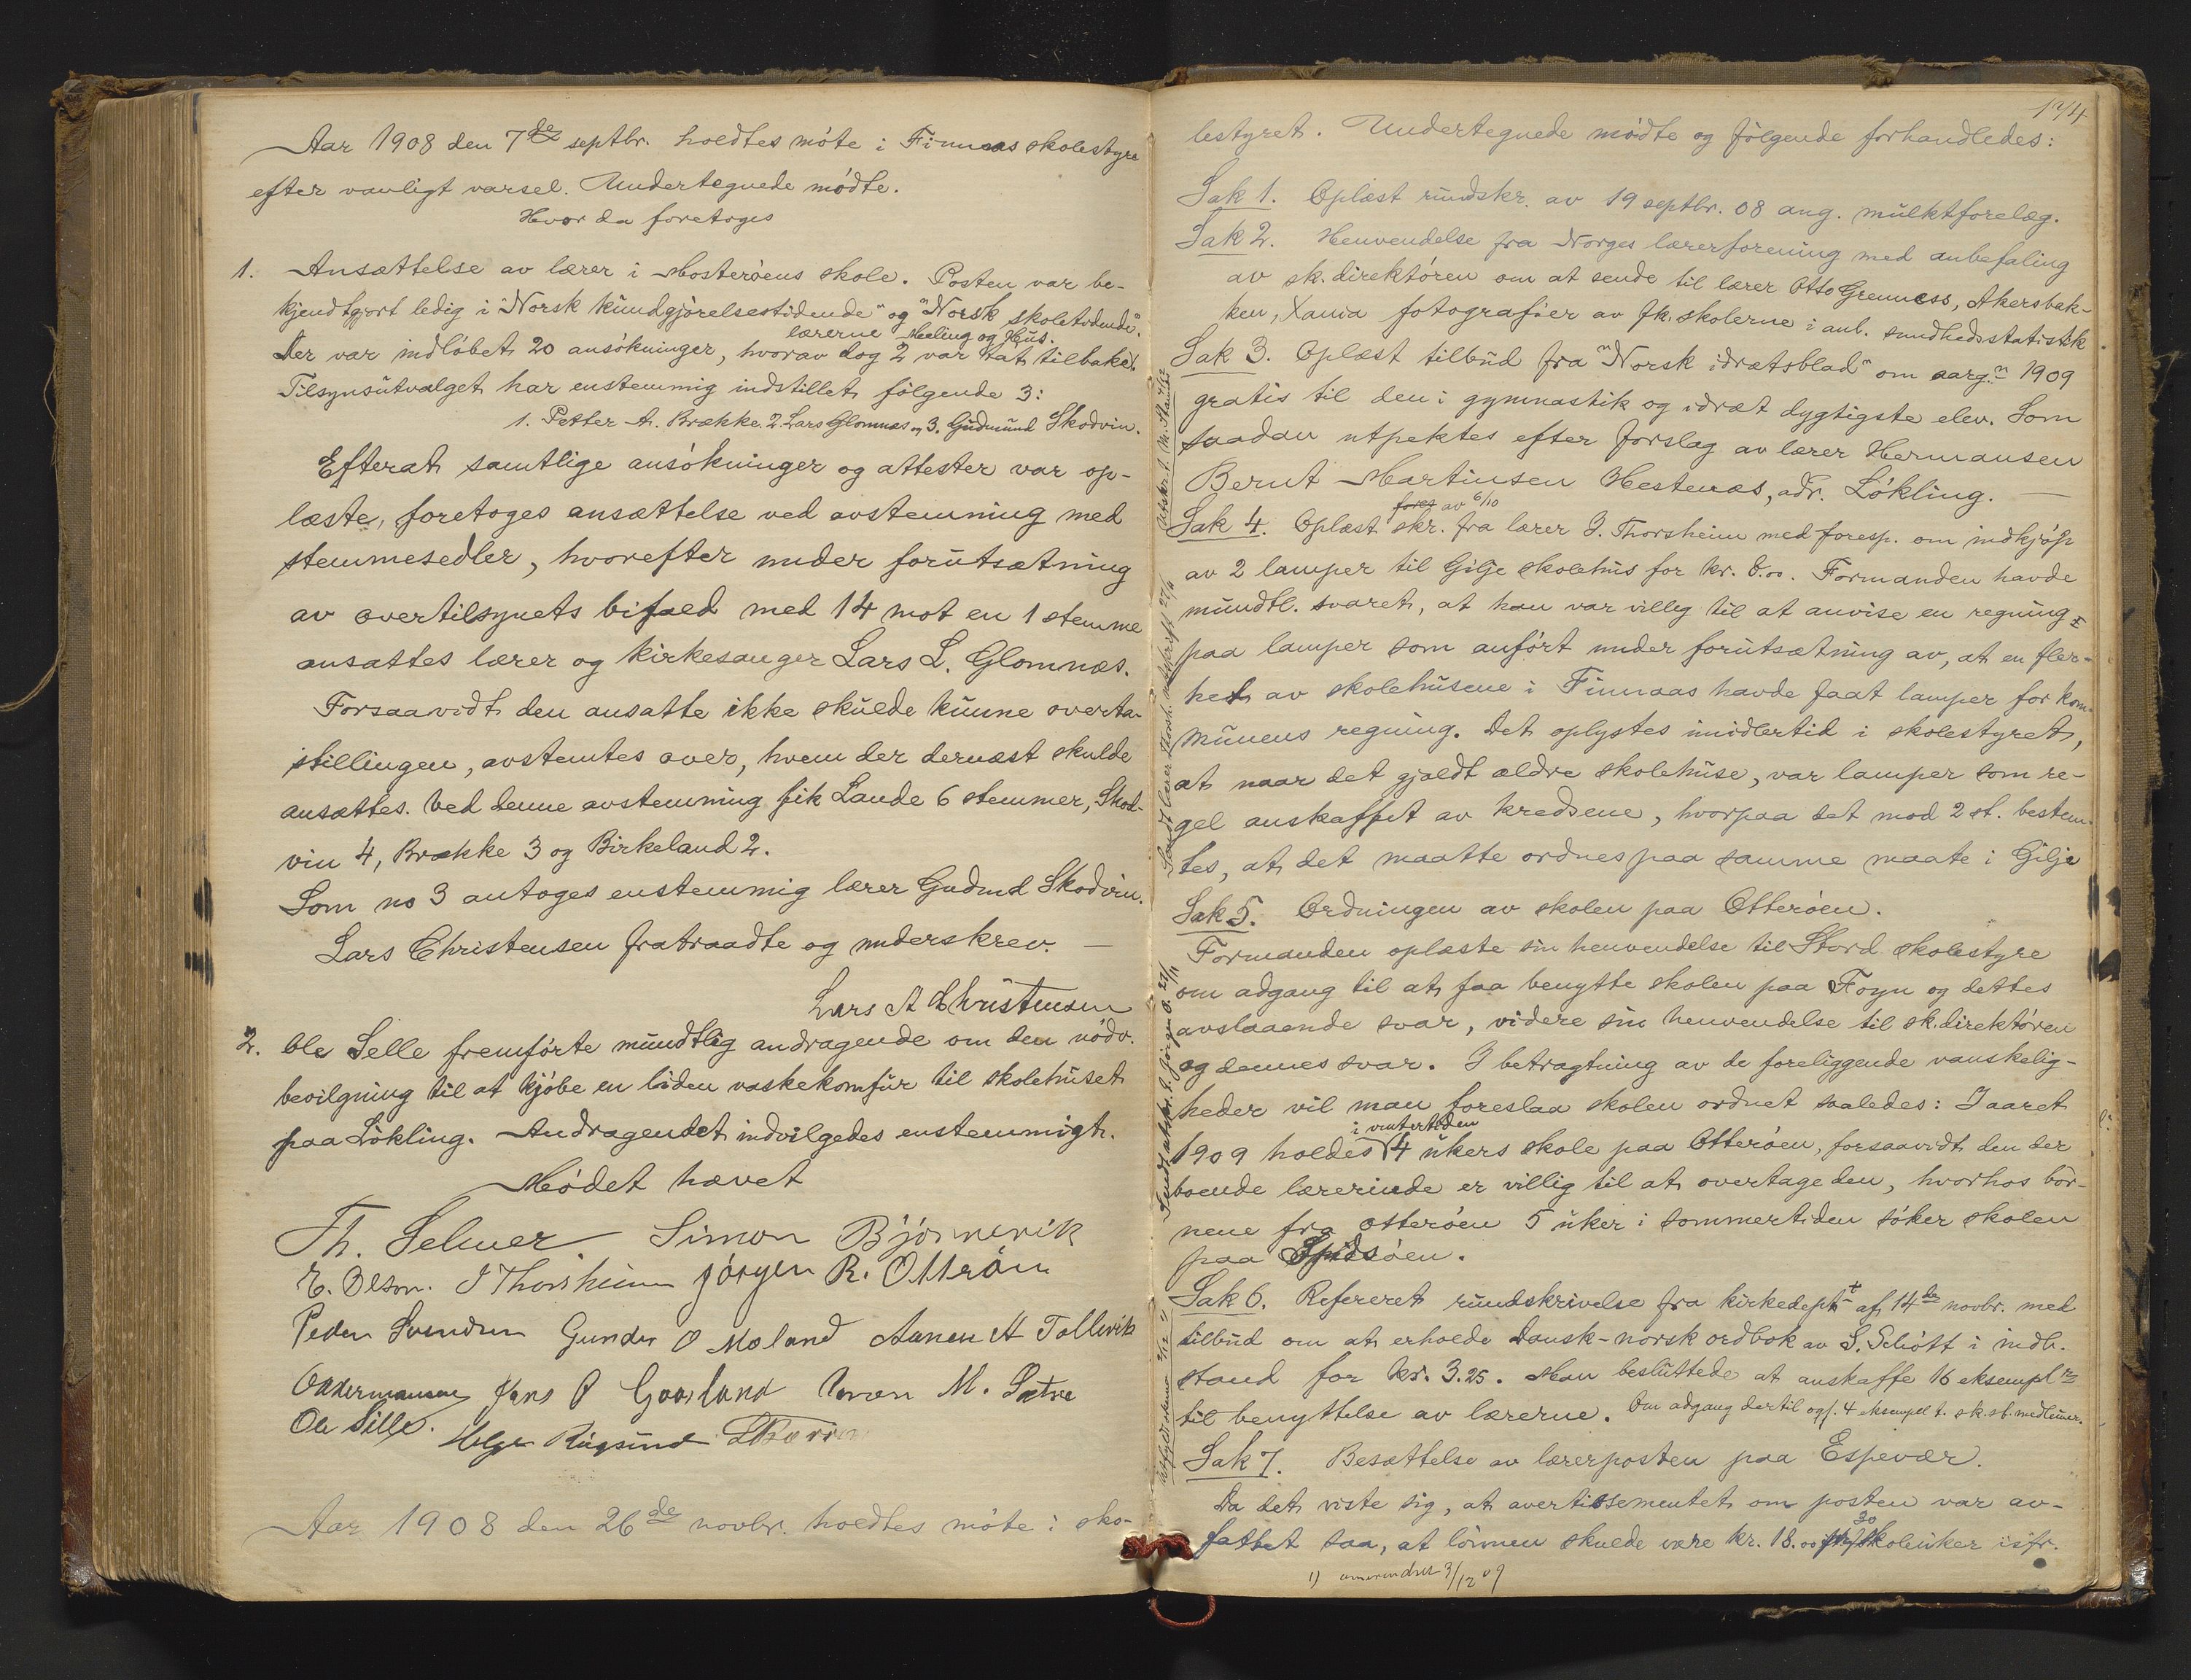 Aar 1908 den 7de septbr. holdtes møte i Finnaas skolestyre
efter vanligt varsel. Undertegnede mødte.
Hvor da foretoges
1. Ansættelse av lærer i Mosterøens skole. Posten var be-
kjendtgjort ledig i "Norsk kundgjørelsestidende" og "Norsk skoletidende".
lærerne Meeling og Hus.
Der var indløbet 20 ansøkninger, hvorav dog 2 var tat tilbake.
Tilsynsutvalget har enstemmig indstillet følgende 3:
1. Petter A. Brække. 2. Lars Glomnæs, 3. Gudmund Skodvin.
Efterat samtlige ansøkninger og attester var op-
læste, foretoges ansættelse ved avstemning med
stemmesedler, hvorefter under forutsætning
av overtilsynets bifald med 14 mot en 1 stemme
ansattes lærer og kirkesanger Lars L. Glomnæs.
Forsaavidt den ansatte ikke skulde kunne overta
stillingen, avstemtes over, hvem der dernæst skulde
ansættes. Ved denne avstemning fik Lande 6 stemmer, Skod-
vin 4, Brække 3 og Birkeland 2.
Som no 3 antoges enstemmig lærer Gudmd Skodvin.
Lars Christensen fratraadte og underskrev. —
Lars A Christensen
2. Ole Selle fremførte mundtlig andragende om den nødv.
bevilgning til at kjøbe en liden vaskekomfur til skolehuset
paa Løkling. Andragendet indvilgedes enstemmigt.
Mødet hævet
Th. Selmer Simon Bjørnevik
E. Olson. J Thorsheim Jørgen R. Otterøen
Peder Svendsen Gunder O Moland Aamen A Tollevik
O Hermansen Jens P Gaasland M. Sætre
Ole Selle. Helge Røgsund
Aar 1908 den 26de novbr. holdtes møte i sko-
174
lestyret. Undertegnede mødte og følgende forhandledes:
Sak 1. Oplæst rundskr. av 19 septbr. 08 ang. mulktforelæg.
Sak 2. Henvendelse fra Norges lærerforening med anbefaling
av sk.direktøren om at sende til lærer Otto Grenness, Akersbak-
ken, Xania fotografier av fk.skolerne i anl. sundhedsstatistik
Sak 3. Oplæst tilbud fra "Norsk idrætsblad" om aarg.n 1909
gratis til den i gymnastik og idræt dygtigste elev. Som
saadan utpektes efter forslag av lærer Hermansen
Bernt Martinsen Hestenæs, adr. Løkling. —
av 6/10
Sak 4. Oplæst skr. fra lærer J. Thorsheim med foresp. om indkjøp
av 2 lamper til Gilje skolehus for kr. 8.00. Formanden havde
mundtl. svaret, at han var villig til at anvise en regning
paa lamper som anført under forutsætning av, at en fler-
het av skolehusene i Finnaas havde faat lamper for kom-
munens regning. Det oplystes imidlertid i skolestyret,
at naar det gjaldt ældre skolehuse, var lamper som re-
gel anskaffet av kredsene, hvorpaa det mod 2 st. bestem-
tes, at det maatte ordnes paa samme maate i Gilje
Sak 5. Ordningen av skolen paa Otterøen.
Formanden oplæste sin henvendelse til Stord skolestyre
om adgang til at faa benytte skolen paa Føyn og dettes
avslaaende svar, videre sin henvendelse til sk.direktøren
og dennes svar. I betragtning av de foreliggende vanskelig-
heder vil man foreslaa skolen ordnet saaledes: I aaret
i vintertiden
1909 holdes 4 ukers skole paa Otterøen, forsaavidt den der
boende lærerinde er villig til at overtage den, hvorhos bør-
nene fra Otterøen 5 uker i sommertiden søker skolen
paa Spidsøen.
Sak 6. Refereret rundskrivelse fra kirkedept.t af 14de novbr. med
tilbud om at erholde Dansk-norsk ordbok av S. Schøtt i indb.
stand for kr. 3.25. Man besluttede at anskaffe 16 eksempl.rs
til benyttelse av lærerne. Om adgang dertil ogs. 4 eksempl t. sk.st. medlemer.
Sak 7. Besættelse av lærerposten paa Espevær.
Da det viste sig, at avertissementet om posten var av-
30
fattet saa, at lønnen skulde være kr. 18.00 skoleuker isfr.
1) omsendret 3/12 09